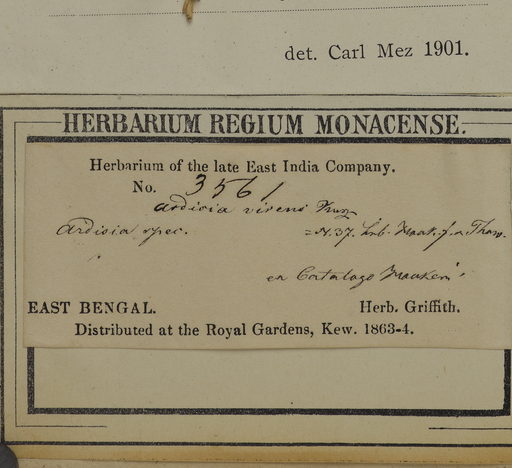 det. Carl Mez 1901.
HERBARIUM REGIUM MONACENSE.
Herbarium of the late East India Company.
No. 3561
Ardisia virens Kurz
Ardisia spec.
= N. 37.
ex Catalogo
EAST BENGAL. Herb. Griffith.
Distributed at the Royal Gardens, Kew. 1863-4.